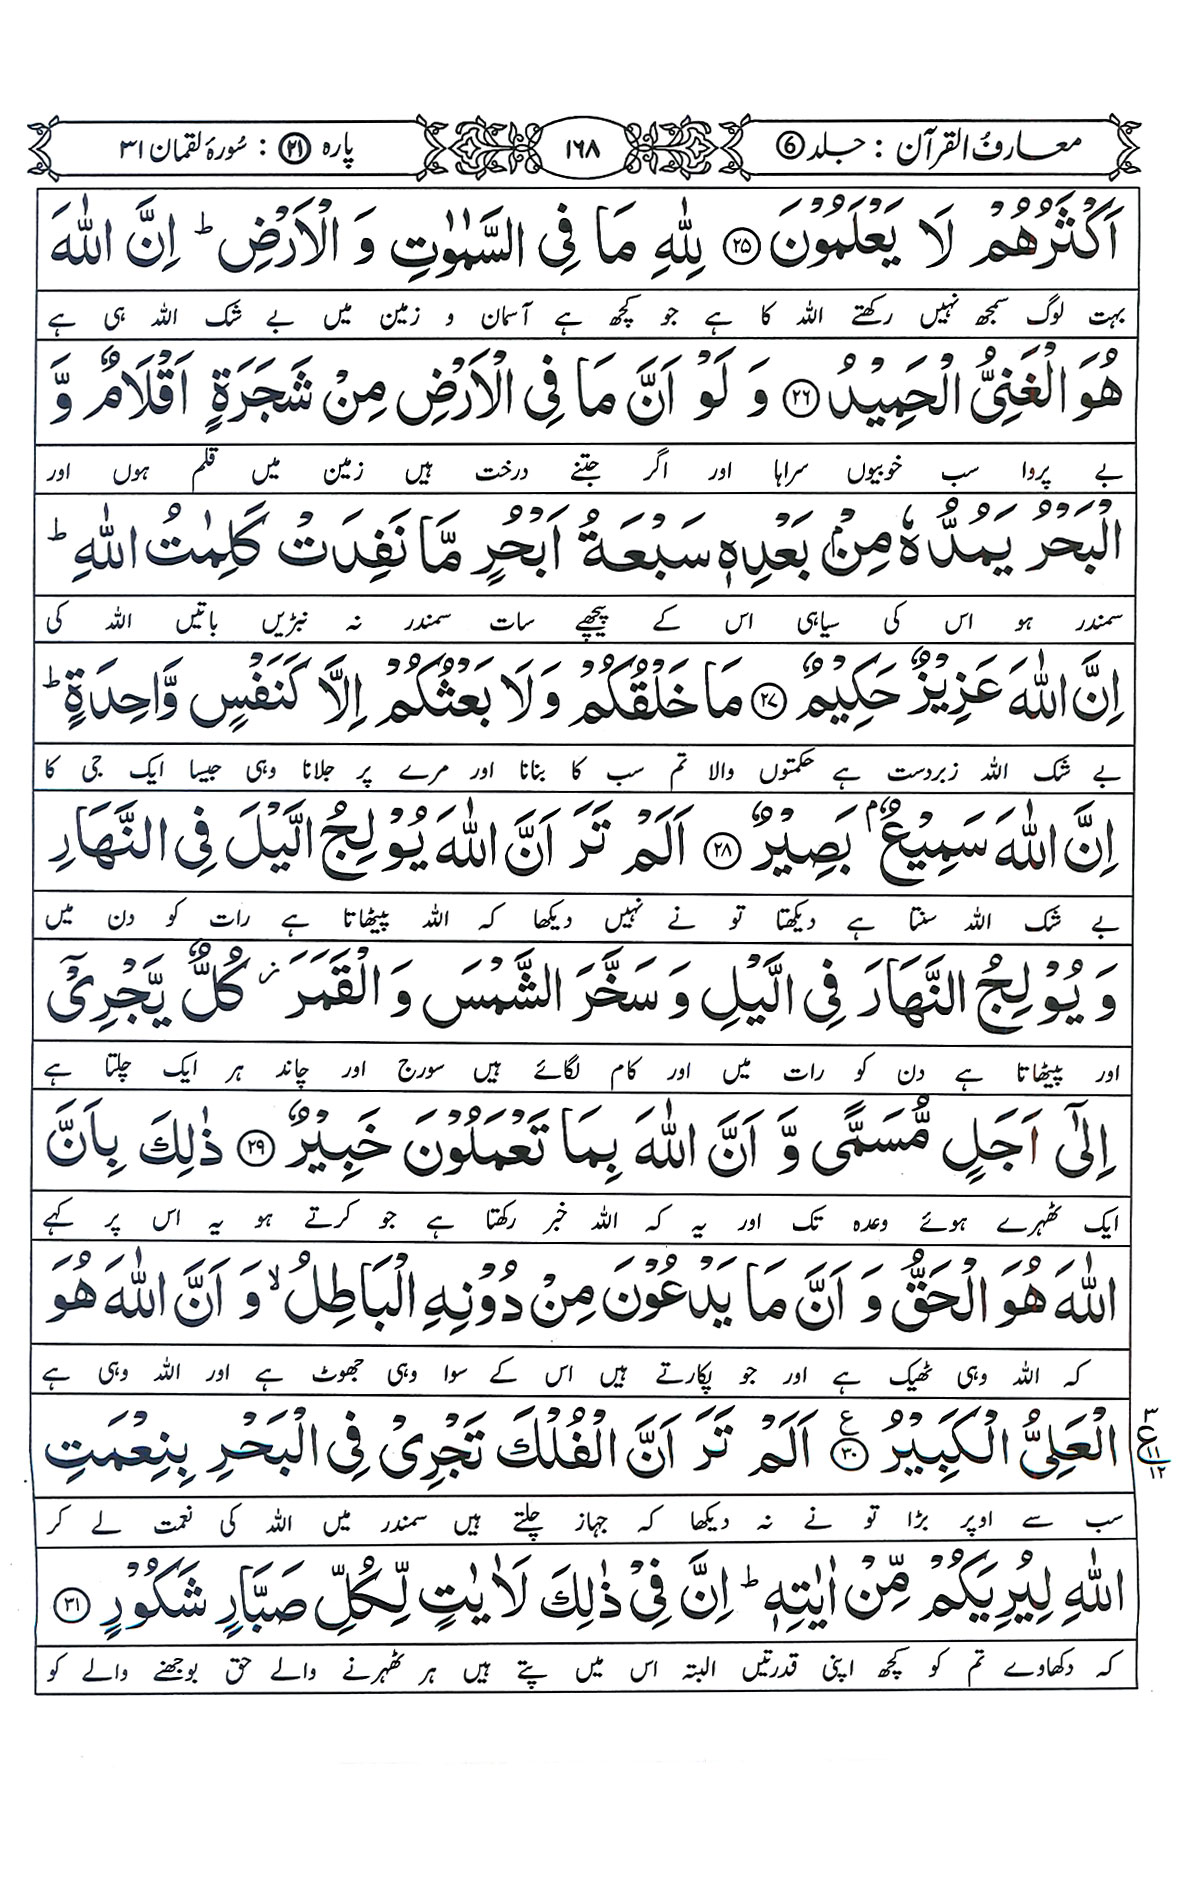 معارف القرآن : جلد ⑥
۱۶۸
پارہ ㉑ : سُورۂ لقمان ۳۱
اَكْثَرُهُمْ لَا يَعْلَمُوْنَ ۲۵ لِلّٰهِ مَا فِى السَّمٰوٰتِ وَ الْاَرْضِ ؕ اِنَّ اللّٰهَ
بہت لوگ سمجھ نہیں رکھتے اللہ کا ہے جو کچھ ہے آسمان و زمین میں بے شک اللہ ہی ہے
هُوَ الْغَنِىُّ الْحَمِيْدُ ۲۶ وَ لَوْ اَنَّ مَا فِى الْاَرْضِ مِنْ شَجَرَةٍ اَقْلَامٌ وَّ
بے پروا سب خوبیوں سراہا اور اگر جتنے درخت ہیں زمین میں قلم ہوں اور
الْبَحْرُ يَمُدُّهٗ مِنْۢ بَعْدِهٖ سَبْعَةُ اَبْحُرٍ مَّا نَفِدَتْ كَلِمٰتُ اللّٰهِ ؕ
سمندر ہو اس کی سیاہی اس کے پیچھے سات سمندر نہ نبڑیں باتیں اللہ کی
اِنَّ اللّٰهَ عَزِيْزٌ حَكِيْمٌ ۲۷ مَا خَلْقُكُمْ وَ لَا بَعْثُكُمْ اِلَّا كَنَفْسٍ وَّاحِدَةٍ ؕ
بے شک اللہ زبردست ہے حکمتوں والا تم سب کا بنانا اور مرے پر جلانا وہی جیسا ایک جی کا
اِنَّ اللّٰهَ سَمِيْعٌۢ بَصِيْرٌ ۲۸ اَلَمْ تَرَ اَنَّ اللّٰهَ يُوْلِجُ الَّيْلَ فِى النَّهَارِ
بے شک اللہ سنتا ہے دیکھتا تو نے نہیں دیکھا کہ اللہ پیٹھاتا ہے رات کو دن میں
وَ يُوْلِجُ النَّهَارَ فِى الَّيْلِ وَ سَخَّرَ الشَّمْسَ وَ الْقَمَرَ ز كُلٌّ يَّجْرِىْۤ
اور پیٹھاتا ہے دن کو رات میں اور کام لگائے ہیں سورج اور چاند ہر ایک چلتا ہے
اِلٰٓى اَجَلٍ مُّسَمًّى وَّ اَنَّ اللّٰهَ بِمَا تَعْمَلُوْنَ خَبِيْرٌ ۲۹ ذٰلِكَ بِاَنَّ
ایک ٹھہرے ہوئے وعدہ تک اور یہ کہ اللہ خبر رکھتا ہے جو کرتے ہو یہ اس پر کہے
اللّٰهَ هُوَ الْحَقُّ وَ اَنَّ مَا يَدْعُوْنَ مِنْ دُوْنِهِ الْبَاطِلُ ۙ وَ اَنَّ اللّٰهَ هُوَ
کہ اللہ وہی ٹھیک ہے اور جو پکارتے ہیں اس کے سوا وہی جھوٹ ہے اور اللہ وہی ہے
الْعَلِىُّ الْكَبِيْرُ ۳۰ ع اَلَمْ تَرَ اَنَّ الْفُلْكَ تَجْرِىْ فِى الْبَحْرِ بِنِعْمَتِ
۳
ع ۱۱
۱۲
سب سے اوپر بڑا تو نے نہ دیکھا کہ جہاز چلتے ہیں سمندر میں اللہ کی نعمت لے کر
اللّٰهِ لِيُرِيَكُمْ مِّنْ اٰيٰتِهٖ ؕ اِنَّ فِىْ ذٰلِكَ لَاٰيٰتٍ لِّكُلِّ صَبَّارٍ شَكُوْرٍ ۳۱
کہ دکھاوے تم کو کچھ اپنی قدرتیں البتہ اس میں پتے ہیں ہر ٹھہرنے والے حق بوجھنے والے کو